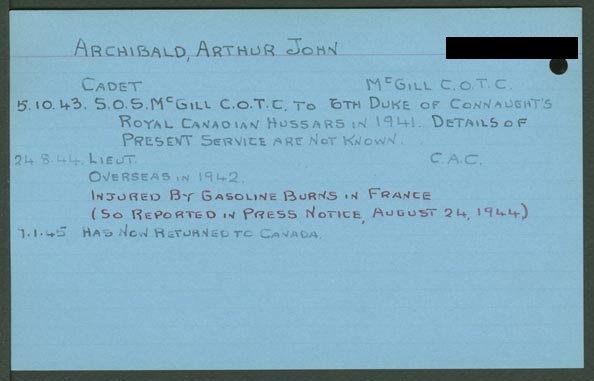 ARCHIBALD, ARTHUR JOHN
CADET McGILL C.O.T.C.
5.10.43. S.O.S. McGILL C.O.T.C. TO 6TH DUKE OF CONNAUGHT'S
ROYAL CANADIAN HUSSARS IN 1941. DETAILS OF
PRESENT SERVICE ARE NOT KNOWN.
24.8.44. LIEUT. C.A.C.
OVERSEAS IN 1942.
INJURED BY GASOLINE BURNS IN FRANCE
(SO REPORTED IN PRESS NOTICE, AUGUST 24, 1944)
7.1.45 HAS NOW RETURNED TO CANADA.